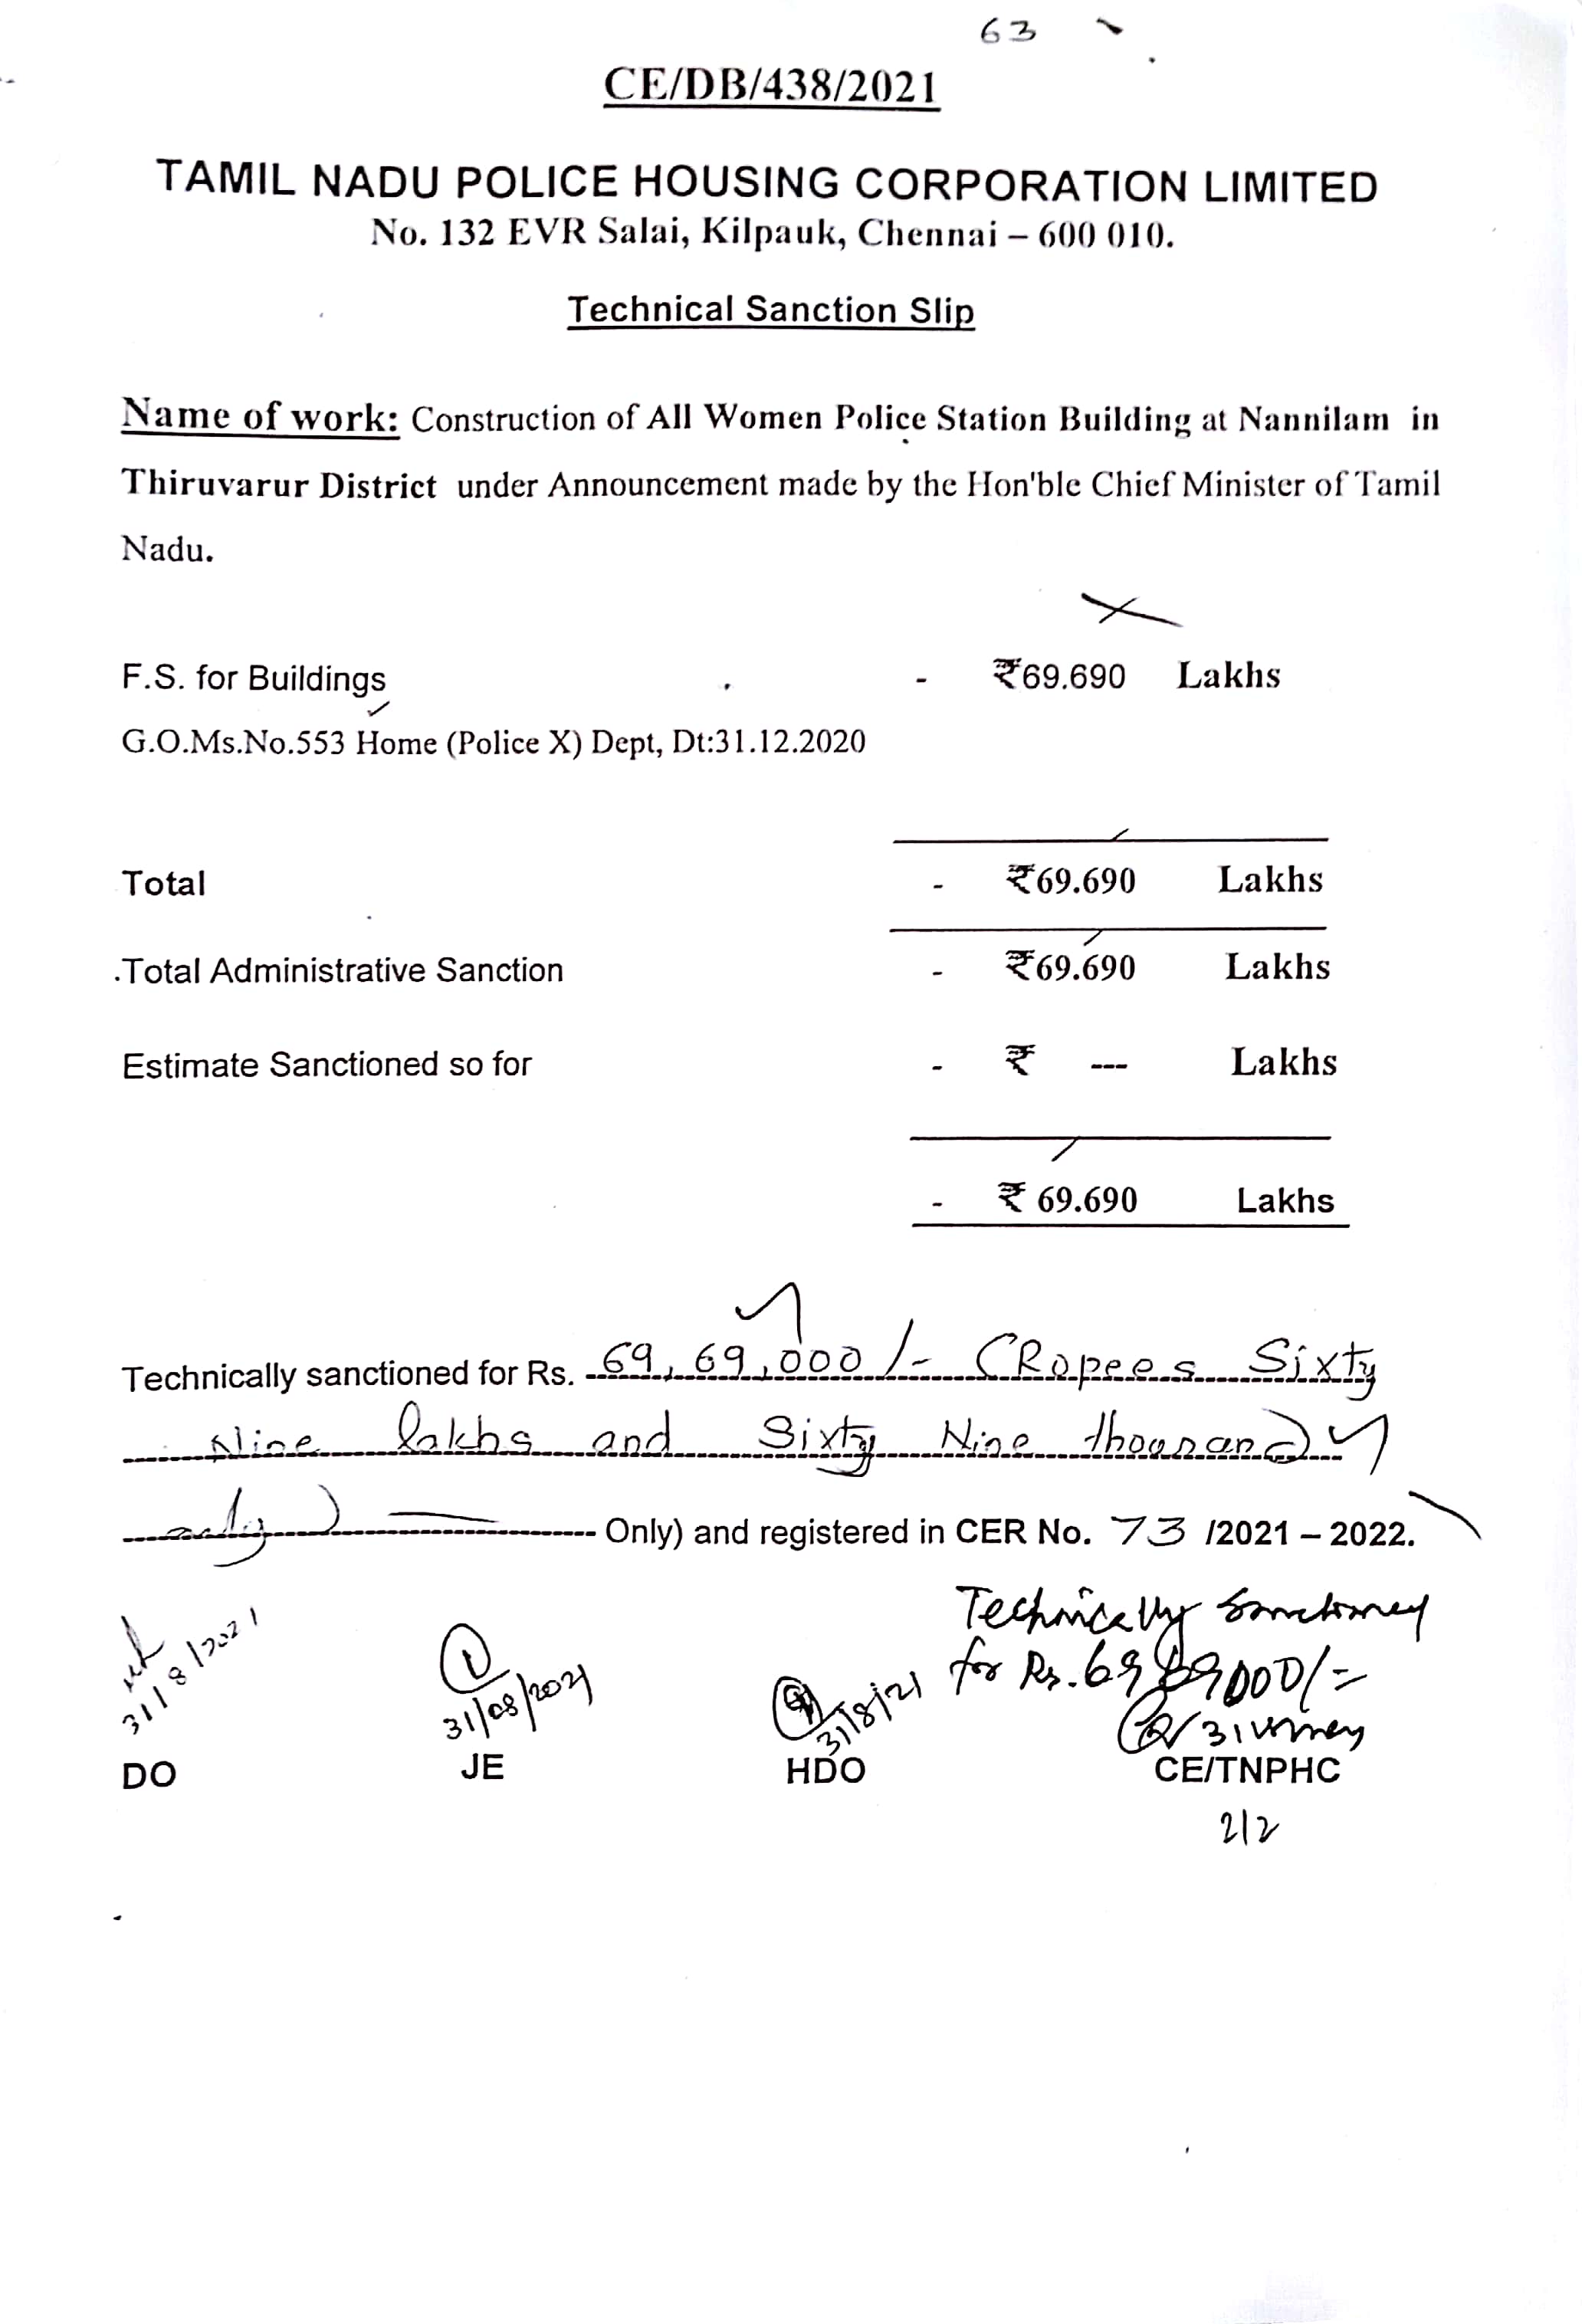 63
CE/DB/438/2021
TAMIL NADU POLICE HOUSING CORPORATION LIMITED
No. 132 EVR Salai, Kilpauk, Chennai – 600 010.
Technical Sanction Slip
Name of work: Construction of All Women Police Station Building at Nannilam in
Thiruvarur District under Announcement made by the Hon'ble Chief Minister of Tamil
Nadu.
F.S. for Buildings - ₹69.690 Lakhs
G.O.Ms.No.553 Home (Police X) Dept, Dt:31.12.2020
Total - ₹69.690 Lakhs
Total Administrative Sanction - ₹69.690 Lakhs
Estimate Sanctioned so for - ₹ --- Lakhs
- ₹ 69.690 Lakhs
Technically sanctioned for Rs. 69,69,000/- (Rupees Sixty
Nine lakhs and Sixty Nine thousand
only) Only) and registered in CER No. 73 /2021 – 2022.
Technically
for Rs. 6969000/=
31/8/2021 31/08/2021 31/8/21
DO JE HDO CE/TNPHC
2/2